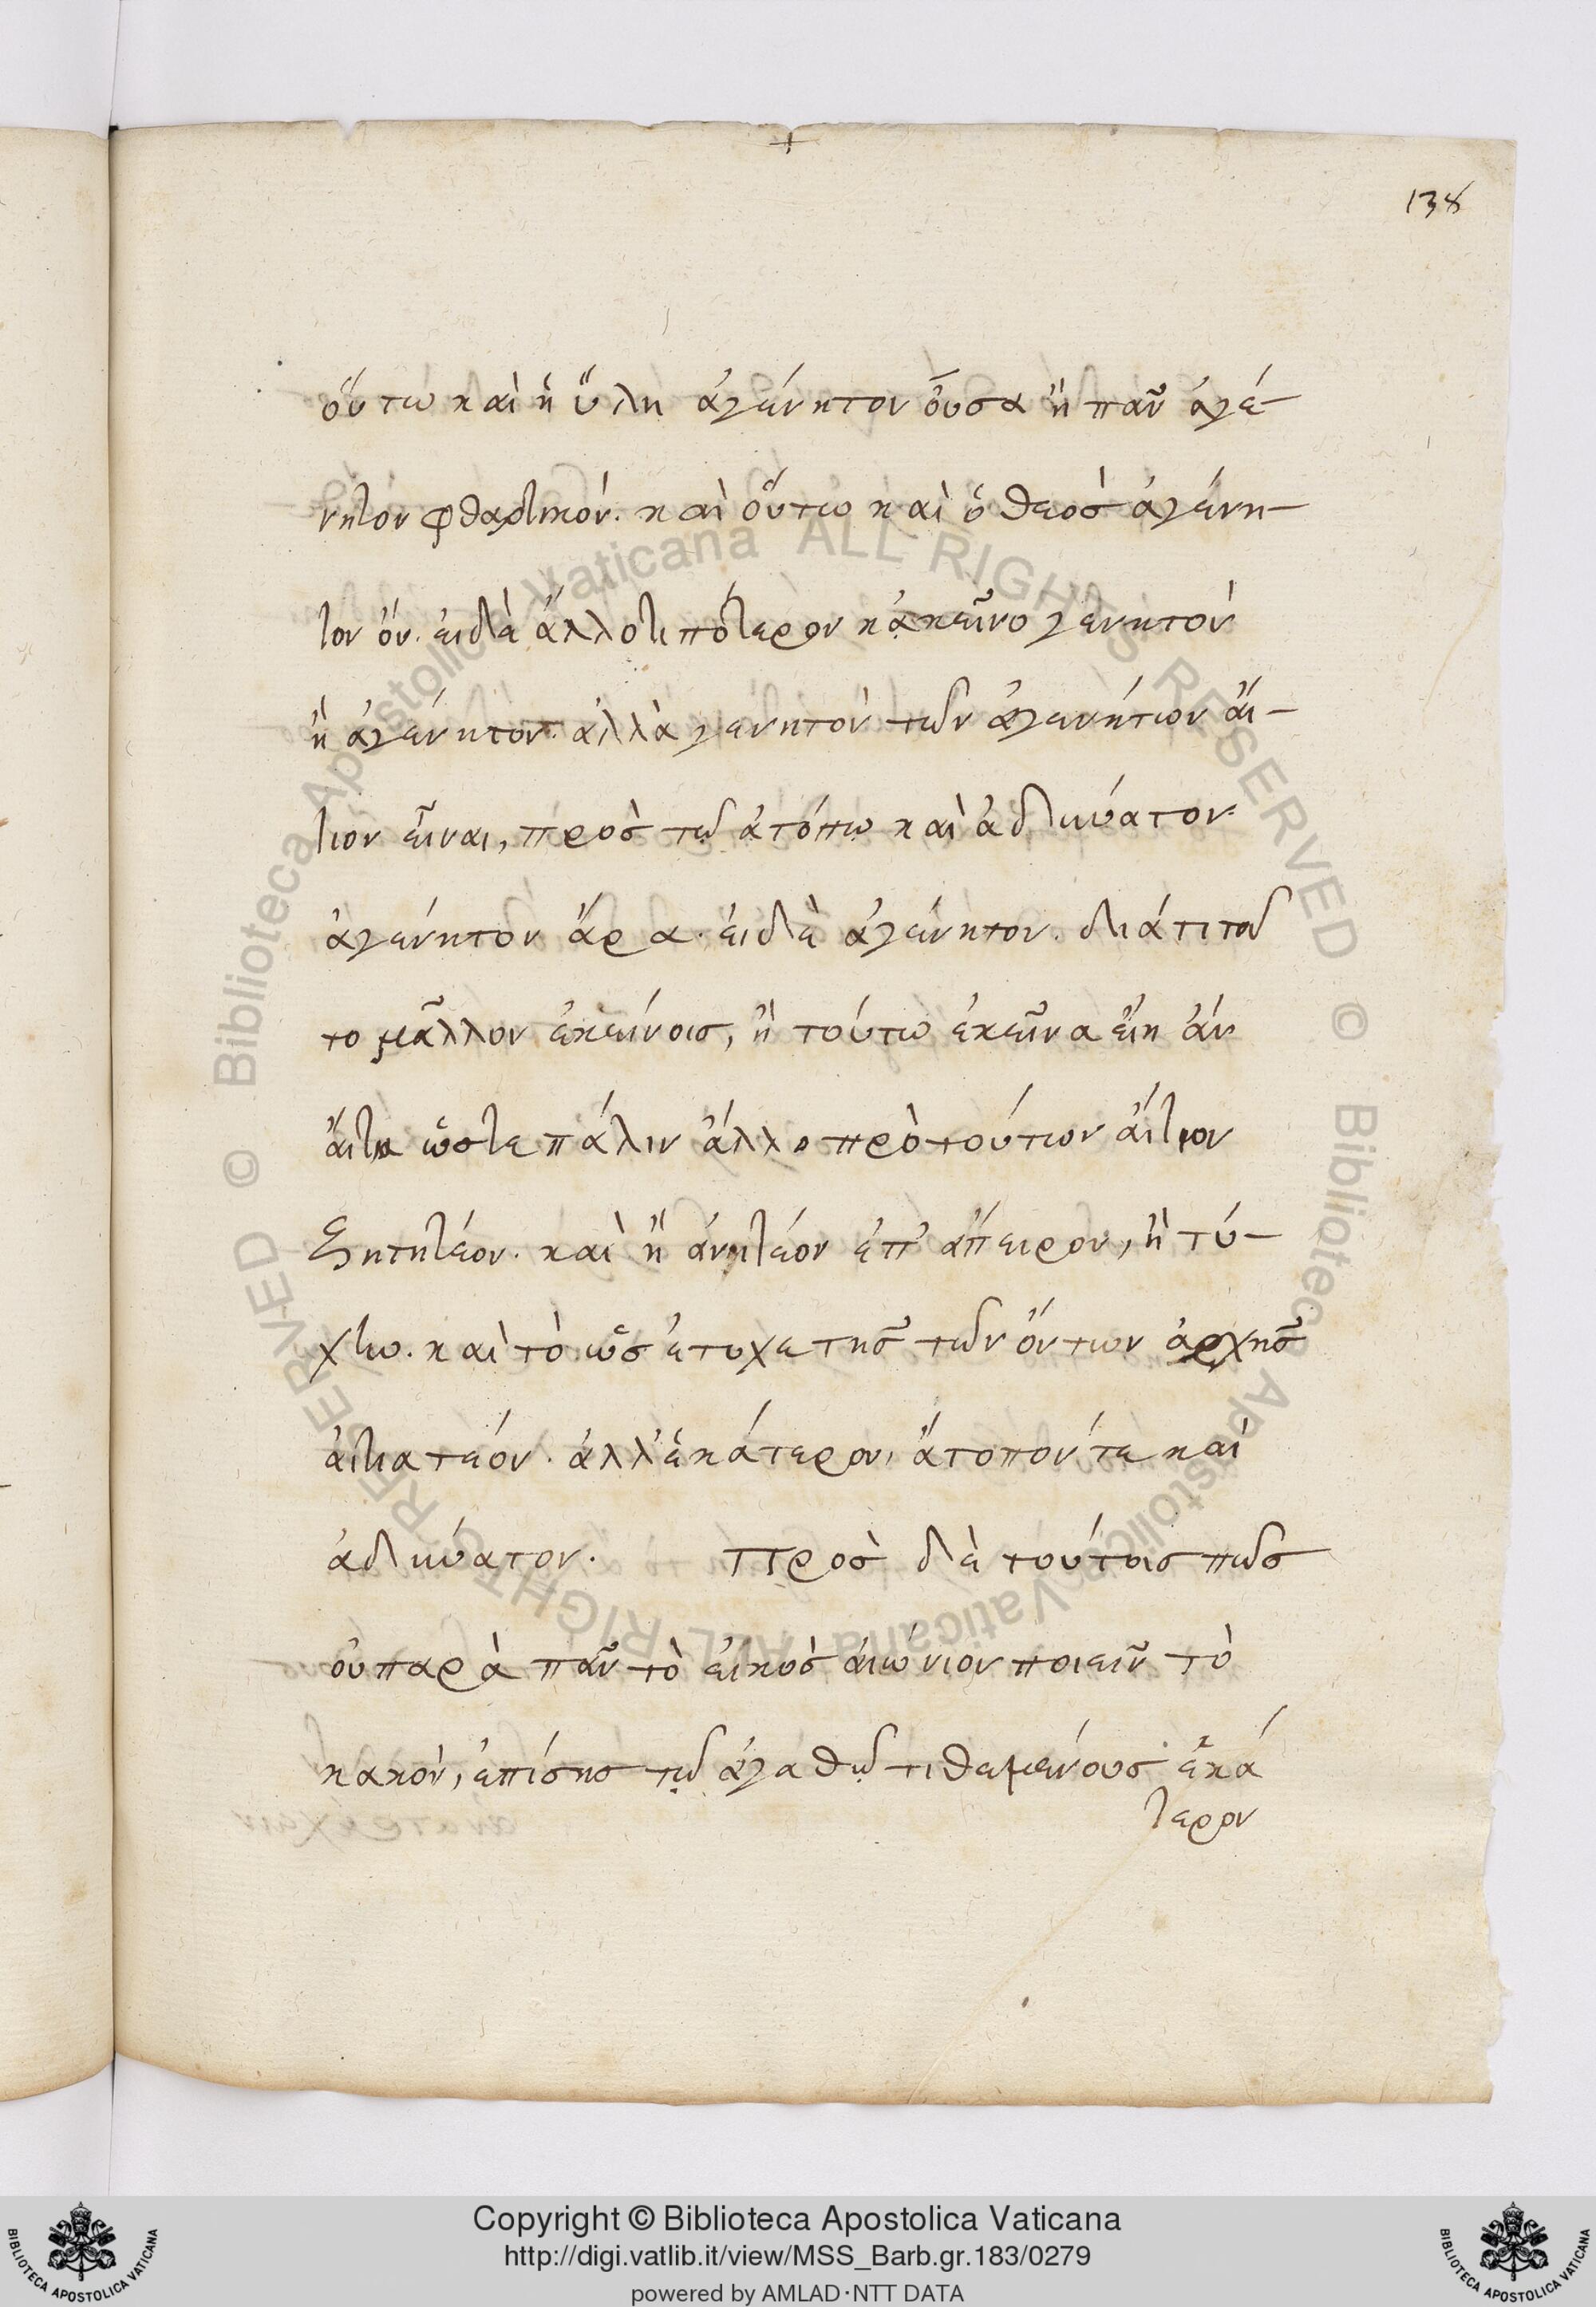 138
οὕτω καὶ ἡ ὕλη ἀγένητον οὖσα ἢ πᾶν ἀγέ-
νητον φθαρτικόν. καὶ οὕτω καὶ ὁ θεὸσ ἀγένη-
τον ὄν. εἰ δὲ ἄλλό τι πότερον κἀκεῖνο γενητὸν
ἢ ἀγένητον. ἀλλὰ γενητὸν τῶν ἀγενήτων αἴ-
τιον εἶναι, πρὸσ τῷ ἀτόπῳ καὶ ἀδύνατον.
ἀγένητον ἄρα. εἰ δὲ ἀγένητον. διάτι τοῦ
το μᾶλλον ἐκείνοισ, ἢ τούτω ἐκεῖνα εἴη ἂν
αἴτια ὥστε πάλιν ἄλλο πρὸ τούτων αἴτιον
ζητητέον. καὶ ἢ ἀνιτέον ἐπ' ἄπειρον, ἢ τύ-
χην. καὶ τὸ ὡσ ἔτυχε τῆσ τῶν ὄντων ἀρχῆσ
αἰτιατέον. ἀλλ' ἑκάτερον, ἄτοπόν τε καὶ
ἀδύνατον. Πρὸσ δὲ τούτοισ πῶσ
οὐ παρὰ πᾶν τὸ εἰκὸσ αἰώνιον ποιεῖν τὸ
κακὸν, ἐπίσησ τῷ ἀγαθῷ τιθεμένουσ ἑκά
τερον
Copyright © Biblioteca Apostolica Vaticana
http://digi.vatlib.it/view/MSS_Barb.gr.183/0279
powered by AMLAD·NTT DATA
BIBLIOTECA APOSTOLICA VATICANA
BIBLIOTECA APOSTOLICA VATICANA
© Biblioteca Apostolica Vaticana ALL RIGHTS RESERVED © Biblioteca Apostolica Vaticana ALL RIGHTS RESERVED